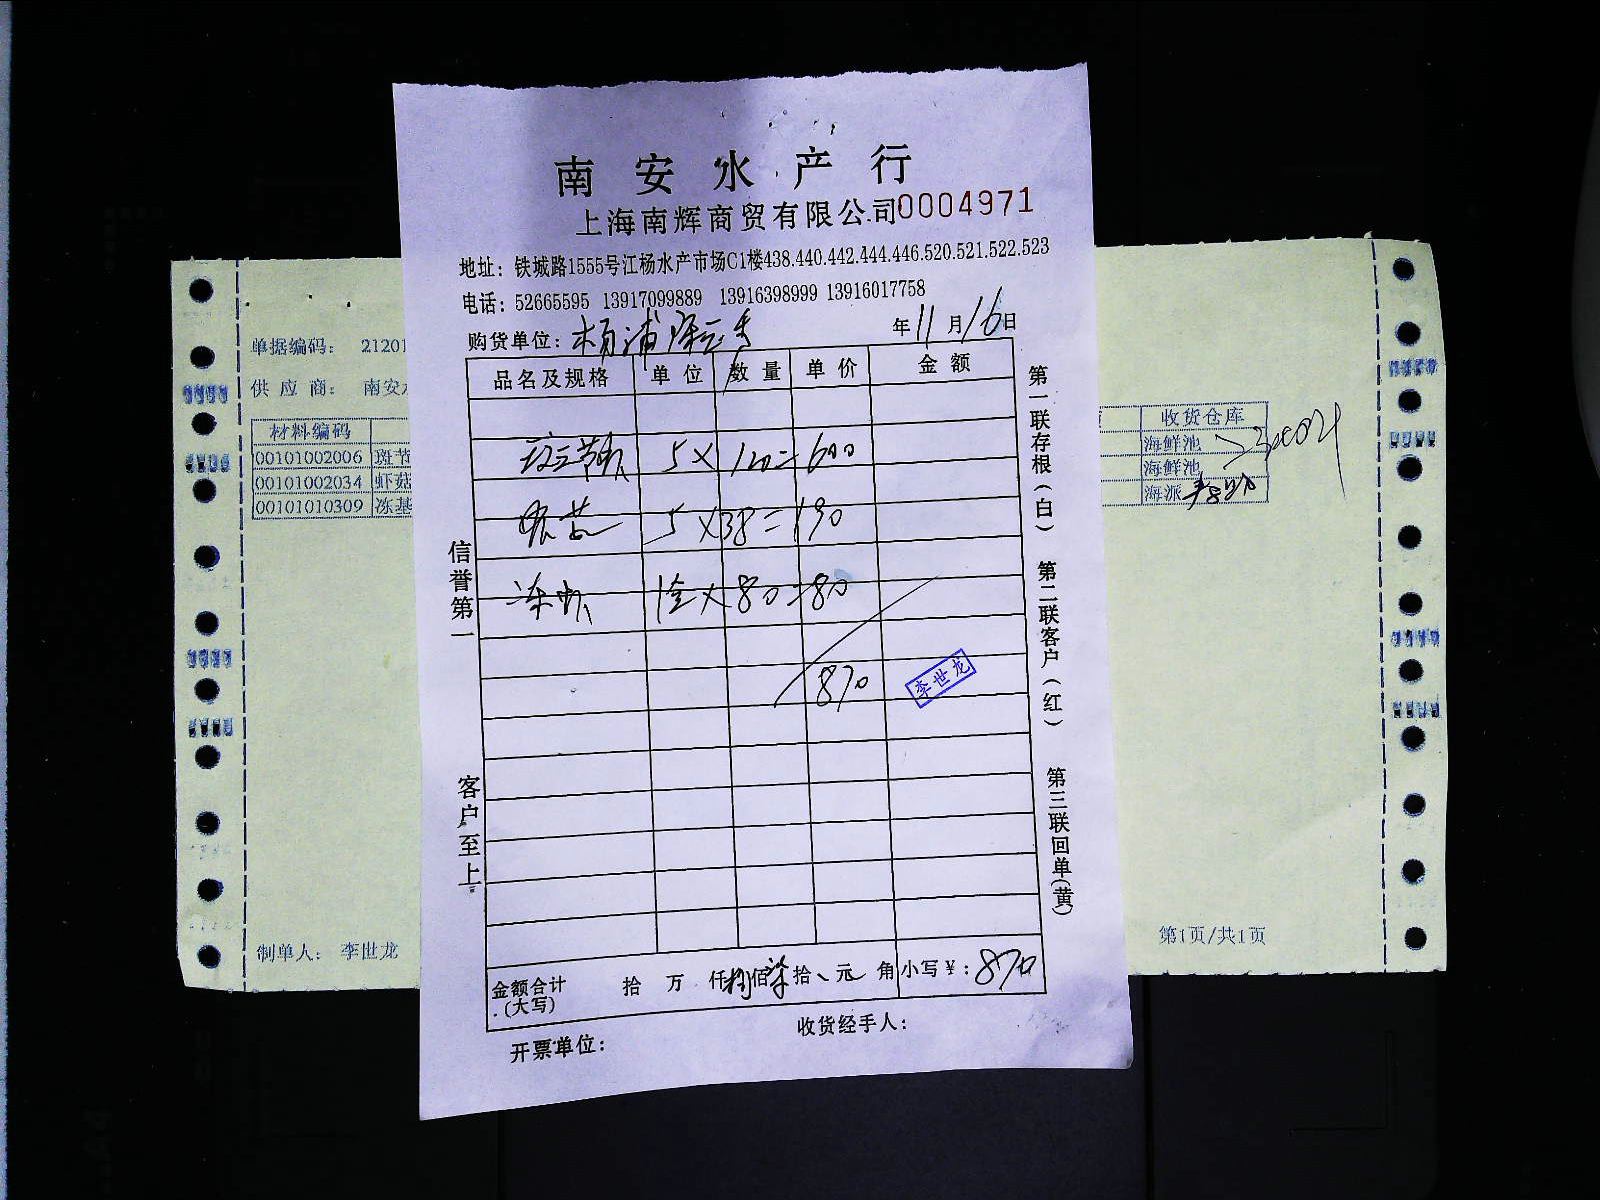 南安水产行
上海南辉商贸有限公司0004971
地址：铁城路1555号江杨水产市场C1楼438.440.442.444.446.520.521.522.523
电话：52665595 13917099889 13916398999 13916017758
购货单位：杨浦 年11月16日
品名及规格 单位 数量 单价 金额
斑节虾 5×120=600
虾菇 5×38=190
冻虾 1盒×80=80
870
李世龙
金额合计(大写) 拾 万 仟捌佰柒拾、元 角 小写¥：870
开票单位：
收货经手人：
信誉第一
客户至上
第一联存根(白)
第二联客户(红)
第三联回单(黄)
单据编码： 21201
供应商： 南安水
材料编码
00101002006 斑节
00101002034 虾菇
00101010309 冻基
制单人： 李世龙
收货仓库
海鲜池
海鲜池
海派
第1页/共1页